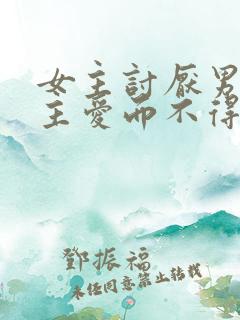 女主討厭男
主愛而不得
鄧振福
未经同意禁止转载